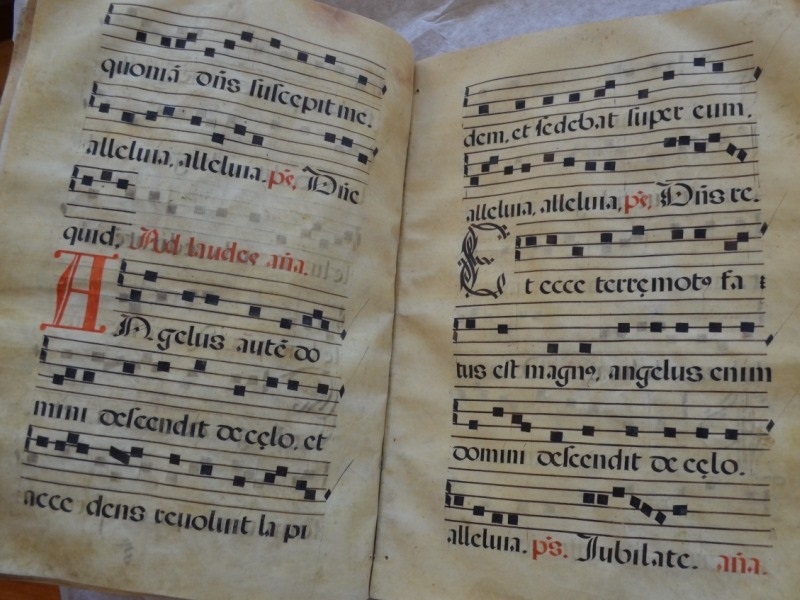 quoniã dñs suscepit me.
alleluia, alleluia. ps, Dñe
quid, Ad laudes aña.
AN gelus autẽ do
mini descendit de cęlo, et
acce dens revoluit la pi
dem, et sedebat super eum,
alleluia, alleluia, ps, Dñs re.
Et ecce terręmotꝰ fa
tus est magnꝰ, angelus enim
domini descendit de cęlo.
alleluia. ps. Jubilate. aña.